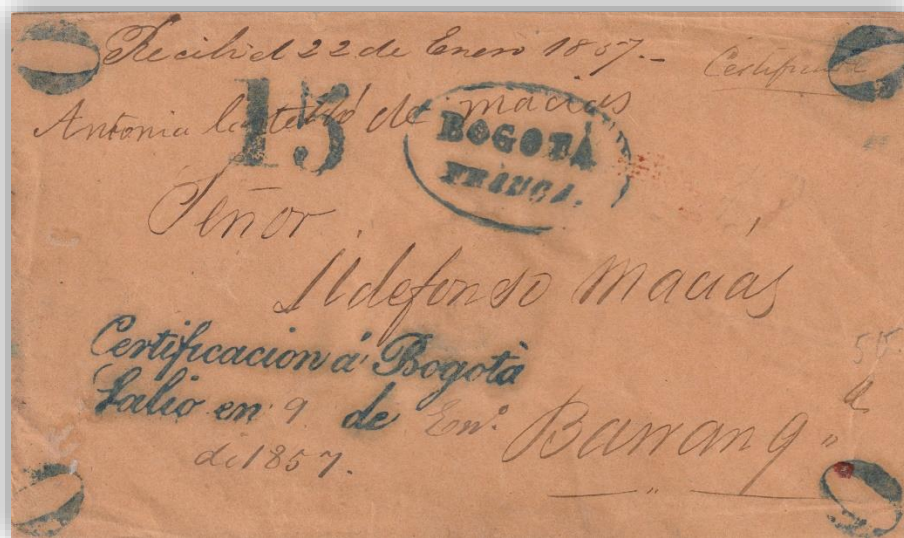 Recibi el 22 de Enero 1857.-
Certificada
Antonia de Macias
15
BOGOTÀ
FRANCA.
Señor
Ildefonso Macias
Certificacion á Bogotà
Salio en 9 de Enº.
de 1857.
Barranqª